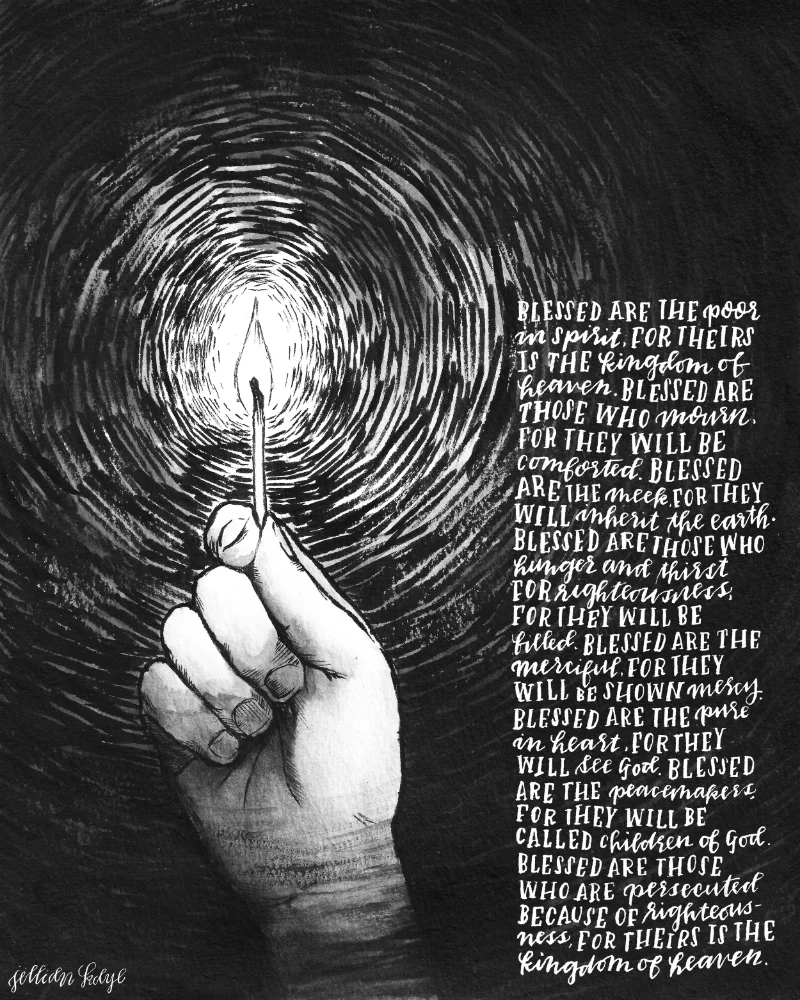 BLESSED ARE THE poor
in spirit, FOR THEIRS
IS THE kingdom of
heaven. BLESSED ARE
THOSE WHO mourn,
FOR THEY WILL BE
comforted. BLESSED
ARE THE meek, FOR THEY
WILL inherit the earth.
BLESSED ARE THOSE WHO
hunger and thirst
FOR righteousness,
FOR THEY WILL BE
filled. BLESSED ARE THE
merciful, FOR THEY
WILL BE SHOWN mercy.
BLESSED ARE THE pure
in heart, FOR THEY
WILL see God. BLESSED
ARE THE peacemakers
FOR THEY WILL BE
CALLED children of God.
BLESSED ARE THOSE
WHO ARE persecuted
BECAUSE OF righteous-
ness, FOR THEIRS IS THE
kingdom of heaven.